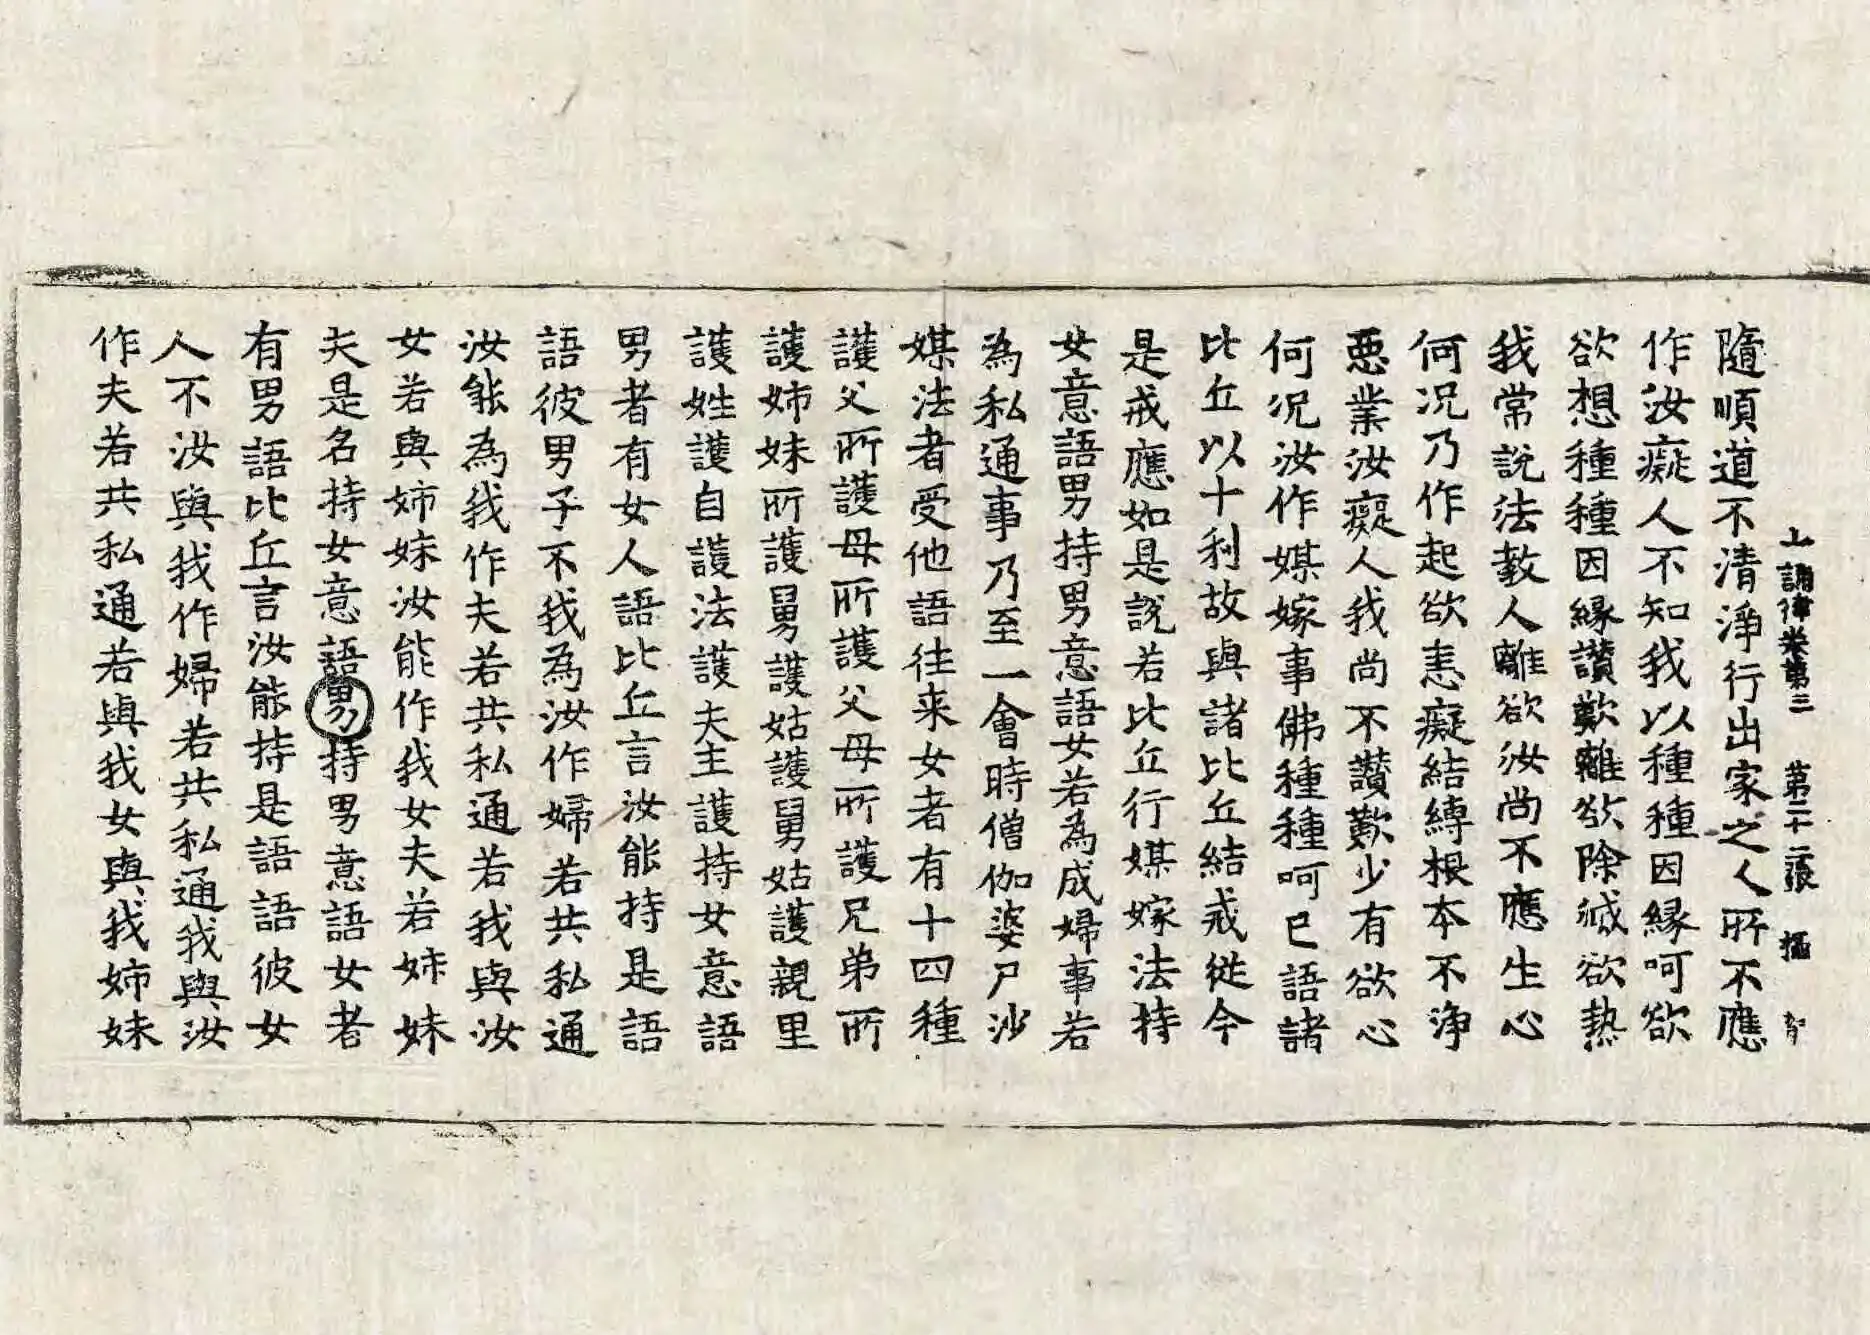 誦律卷第三 第二十二張
隨順道不清淨行出家之人所不應
作汝癡人不知我以種種因緣呵欲
欲想種種因緣讃歎離欲除滅欲熱
我常說法教人離欲汝尚不應生心
何況乃作起欲恚癡結縛根本不淨
惡業汝癡人我尚不讃歎少有欲心
何況汝作媒嫁事佛種種呵已語諸
比丘以十利故與諸比丘結戒從今
是戒應如是說若比丘行媒嫁法持
女意語男持男意語女若為成婦事若
為私通事乃至一會時僧伽婆尸沙
媒法者受他語往来女者有十四種
護父所護母所護父母所護兄弟所
護姉妹所護舅護姑護舅姑護親里
護姓護自護法護夫主護持女意語
男者有女人語比丘言汝能持是語
語彼男子不我為汝作婦若共私通
汝能為我作夫若共私通若我與汝
女若與姉妹汝能作我女夫若姉妹
夫是名持女意語男持男意語女者
有男語比丘言汝能持是語語彼女
人不汝與我作婦若共私通我與汝
作夫若共私通若與我女與我姉妹